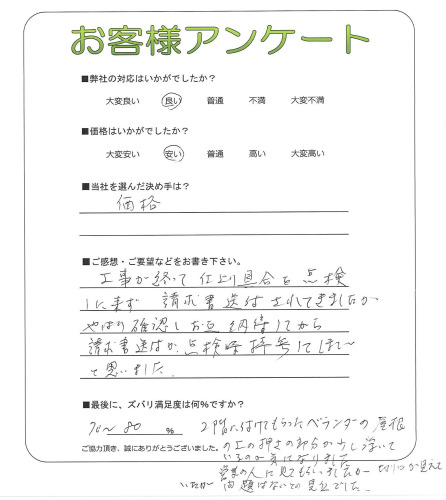 お客様アンケート
■弊社の対応はいかがでしたか?
大変良い 良い 普通 不満 大変不満
■価格はいかがでしたか?
大変安い 安い 普通 高い 大変高い
■当社を選んだ決め手は?
価格
■ご感想・ご要望などをお書き下さい。
工事が終って仕上り具合を点検
に来ず 請求書送付されてきましたが
やはり確認しお互納得してから
請求書送付か点検時持参してほしい
と思いました
■最後に、ズバリ満足度は何%ですか?
70〜80 % 2階に付けてもらったベランダーの屋根
ご協力頂き、誠にありがとうございました。の上の押さの部分が少し浮いて
いるのが気になりました
営業の人に見てもらいましたが 切りつが見えて
いたが 問題はないとの見立でした。